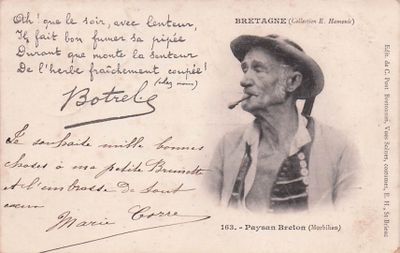 Oh! que le soir, avec lenteur,
Il fait bon fumer sa pipée
Durant que monte la senteur
De l'herbe fraîchement coupée!
(chez nous)
Botrel
BRETAGNE (Collection E. Hamonic)
Je souhaite mille bonnes
choses à ma petite Brunette
et l'embrasse de tout
cœur
Marie Corre
163. - Paysan Breton (Morbihan)
Edit. de C. Bonnamen, comines, E. H., St Brieuc